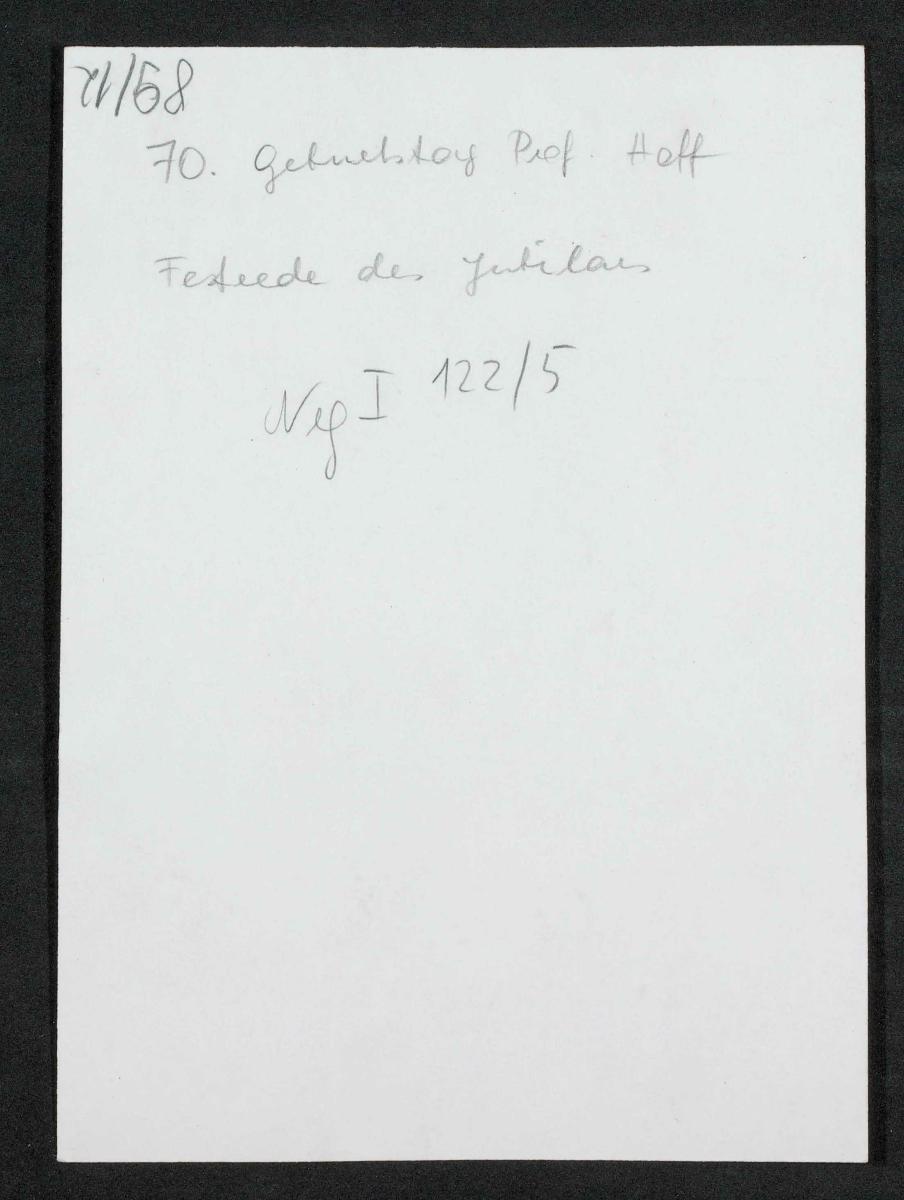 21/58
70. Geburtstag Prof. Hoff
Festrede des Jubilars
Neg I 122/5